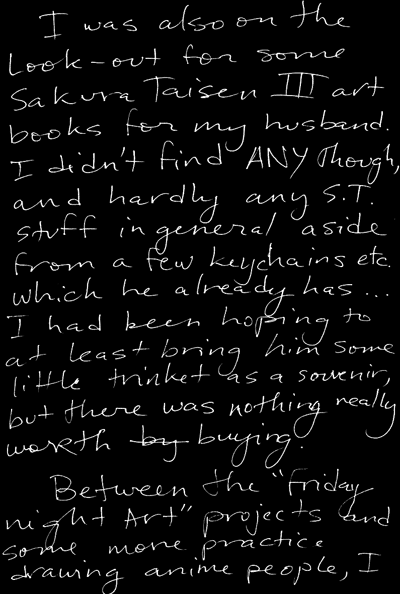 I was also on the
Look-out for some
Sakura Taisen III art
books for my husband.
I didn't find ANY though,
and hardly any S.T.
stuff in general aside
from a few keychains etc.
which he already has...
I had been hoping to
at least bring him some
little trinket as a souvenir,
but there was nothing really
worth by buying.
Between the "Friday
night Art" projects and
some more practice
drawing anime people, I